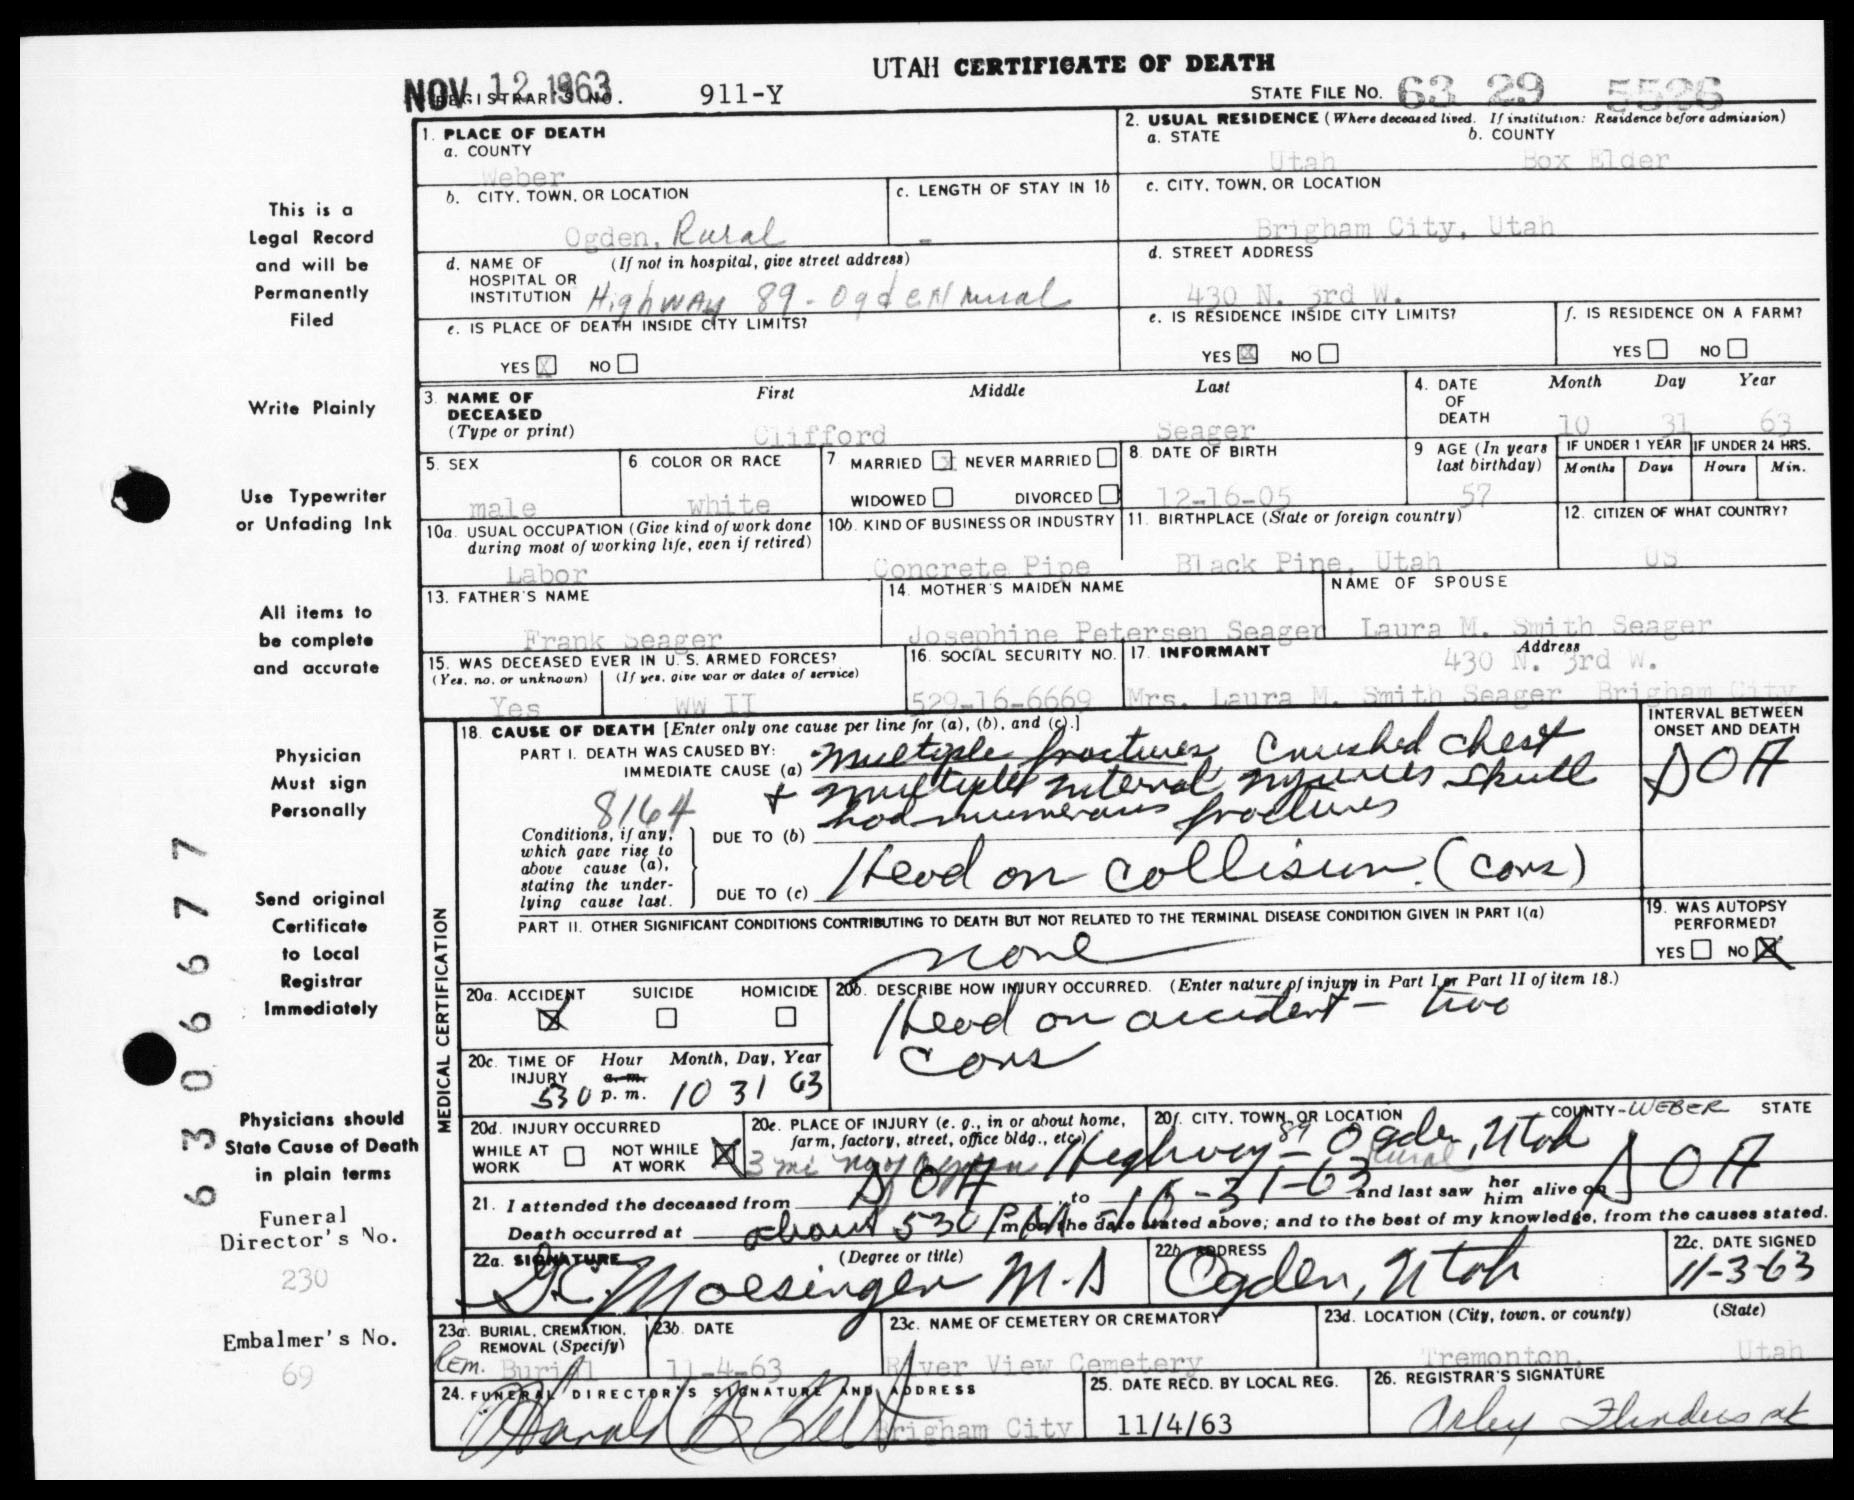 UTAH CERTIFICATE OF DEATH
NOV 12 1963
REGISTRAR'S NO. 911-Y
STATE FILE NO. 63 29 5526
1. PLACE OF DEATH
a. COUNTY
Weber
2. USUAL RESIDENCE (Where deceased lived. If institution: Residence before admission)
a. STATE b. COUNTY
Utah Box Elder
b. CITY, TOWN, OR LOCATION
Ogden, Rural
c. LENGTH OF STAY IN 1b
-
c. CITY, TOWN, OR LOCATION
Brigham City, Utah
d. NAME OF HOSPITAL OR INSTITUTION (If not in hospital, give street address)
Highway 89 - Ogden rural
d. STREET ADDRESS
430 N. 3rd W.
e. IS PLACE OF DEATH INSIDE CITY LIMITS?
YES X NO
e. IS RESIDENCE INSIDE CITY LIMITS?
YES X NO
f. IS RESIDENCE ON A FARM?
YES NO
3. NAME OF DECEASED (Type or print)
First Middle Last
Clifford Seager
4. DATE OF DEATH
Month Day Year
10 31 63
5. SEX
male
6 COLOR OR RACE
White
7 MARRIED X NEVER MARRIED
WIDOWED DIVORCED
8 DATE OF BIRTH
12-16-05
9 AGE (In years last birthday)
57
IF UNDER 1 YEAR
Months Days
IF UNDER 24 HRS.
Hours Min.
10a. USUAL OCCUPATION (Give kind of work done during most of working life, even if retired)
Labor
10b. KIND OF BUSINESS OR INDUSTRY
Concrete Pipe
11. BIRTHPLACE (State or foreign country)
Black Pine, Utah
12. CITIZEN OF WHAT COUNTRY?
US
13. FATHER'S NAME
Frank Seager
14. MOTHER'S MAIDEN NAME
Josephine Petersen Seager
NAME OF SPOUSE
Laura M. Smith Seager
15. WAS DECEASED EVER IN U.S. ARMED FORCES?
(Yes, no, or unknown) (If yes, give war or dates of service)
Yes WW II
16. SOCIAL SECURITY NO.
529-16-6669
17. INFORMANT Address
430 N. 3rd W.
Mrs. Laura M. Smith Seager Brigham City
MEDICAL CERTIFICATION
18. CAUSE OF DEATH [Enter only one cause per line for (a), (b), and (c).]
PART I. DEATH WAS CAUSED BY:
IMMEDIATE CAUSE (a)
multiple fractures, Crushed chest
+ multiple internal injuries skull
had numerous fractures
8164
Conditions, if any, which gave rise to above cause (a), stating the underlying cause last.
DUE TO (b)
DUE TO (c)
Head on Collision. (Cars)
INTERVAL BETWEEN ONSET AND DEATH
DOA
PART II. OTHER SIGNIFICANT CONDITIONS CONTRIBUTING TO DEATH BUT NOT RELATED TO THE TERMINAL DISEASE CONDITION GIVEN IN PART I(a)
none
19. WAS AUTOPSY PERFORMED?
YES NO X
20a. ACCIDENT X SUICIDE HOMICIDE
20b. DESCRIBE HOW INJURY OCCURRED. (Enter nature of injury in Part I or Part II of item 18.)
Head on accident - two
Cars
20c. TIME OF INJURY
Hour Month, Day, Year
a. m.
530 p. m. 10 31 63
20d. INJURY OCCURRED
WHILE AT WORK NOT WHILE AT WORK X
20e. PLACE OF INJURY (e. g., in or about home, farm, factory, street, office bldg., etc.)
3 mi
20f. CITY, TOWN, OR LOCATION COUNTY-WEBER STATE
Highway 89 - Ogden, Utah
Rural
21. I attended the deceased from DOA, to 10-31-63 and last saw her him alive on DOA
Death occurred at about 530 PM m on the date stated above; and to the best of my knowledge, from the causes stated.
22a. SIGNATURE (Degree or title)
Moesinger M.D
22b. ADDRESS
Ogden, Utah
22c. DATE SIGNED
11-3-63
23a. BURIAL, CREMATION, REMOVAL (Specify)
Rem. Burial
23b. DATE
11-4-63
23c. NAME OF CEMETERY OR CREMATORY
River View Cemetery
23d. LOCATION (City, town, or county) (State)
Tremonton, Utah
24. FUNERAL DIRECTOR'S SIGNATURE AND ADDRESS
Harold B
Brigham City
25. DATE RECD. BY LOCAL REG.
11/4/63
26. REGISTRAR'S SIGNATURE
Arley Flinders
This is a
Legal Record
and will be
Permanently
Filed
Write Plainly
Use Typewriter
or Unfading Ink
All items to
be complete
and accurate
Physician
Must sign
Personally
Send original
Certificate
to Local
Registrar
Immediately
Physicians should
State Cause of Death
in plain terms
Funeral
Director's No.
230
Embalmer's No.
69
6 3 0 6 6 7 7